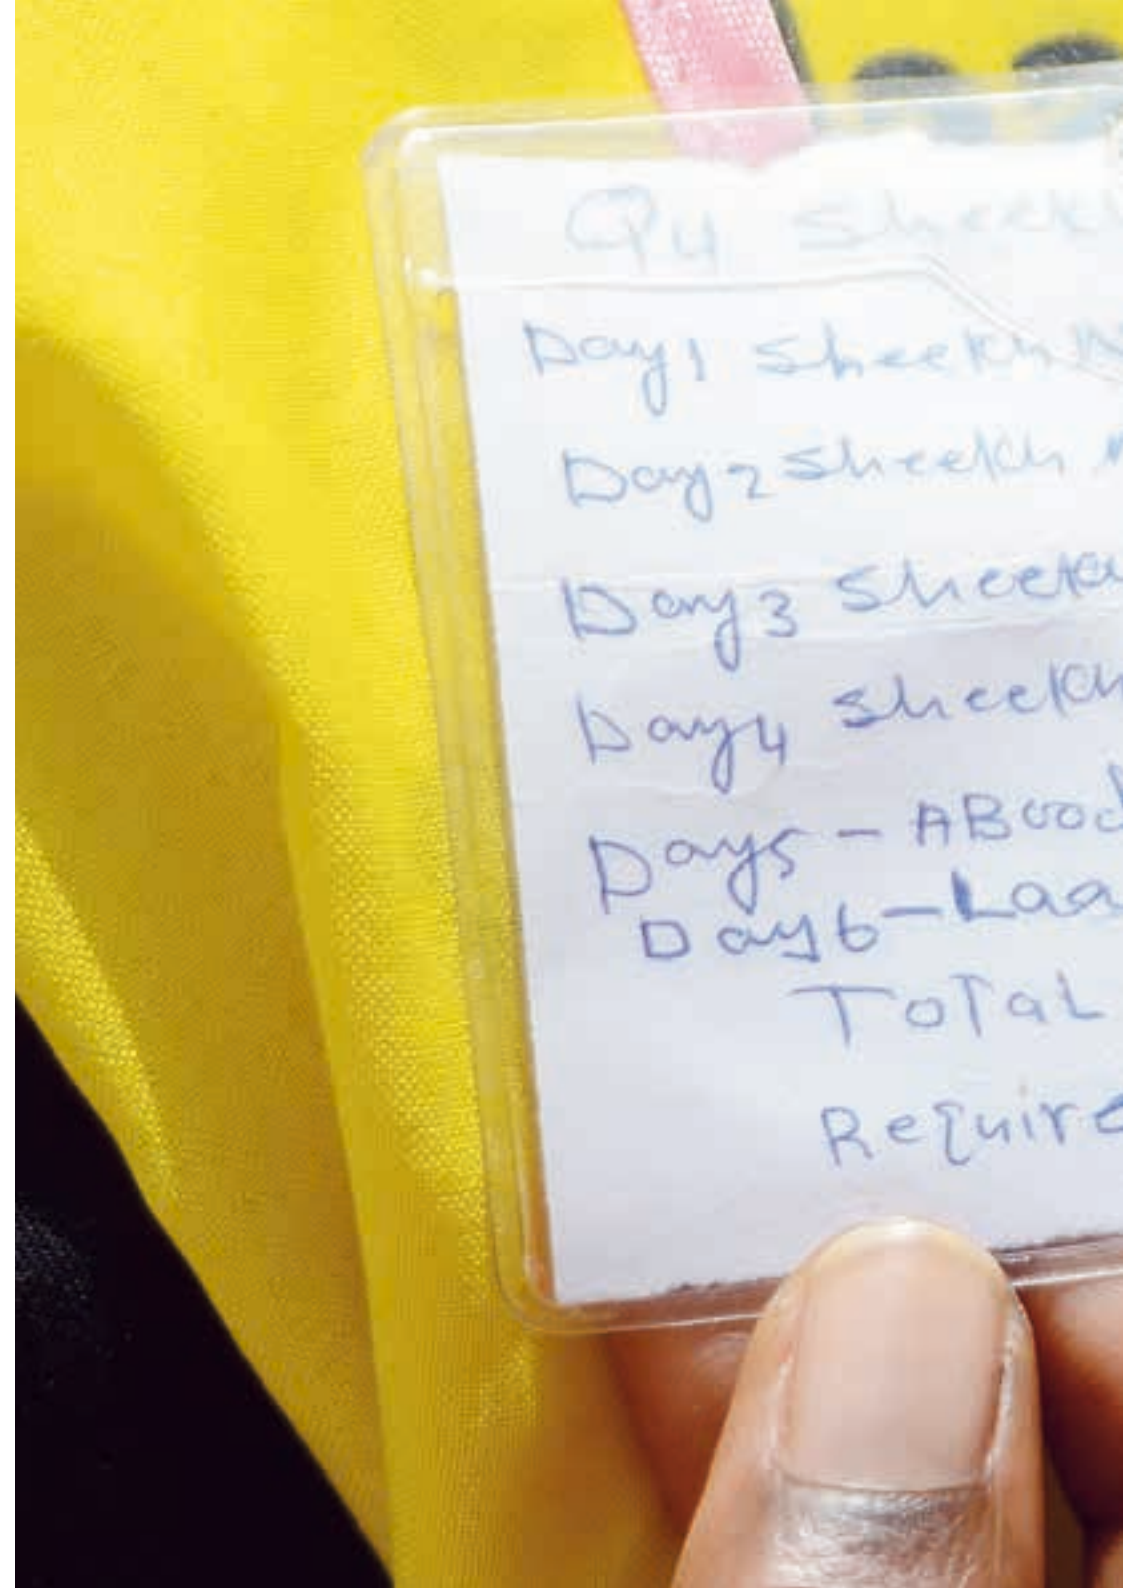 Q4 Sheekh
Day 1 Sheekh
Day 2 Sheekh
Day 3 Sheekh
Day 4 Sheekh
Day 5 - ABood
Day 6 - Laa
ToTaL
Require